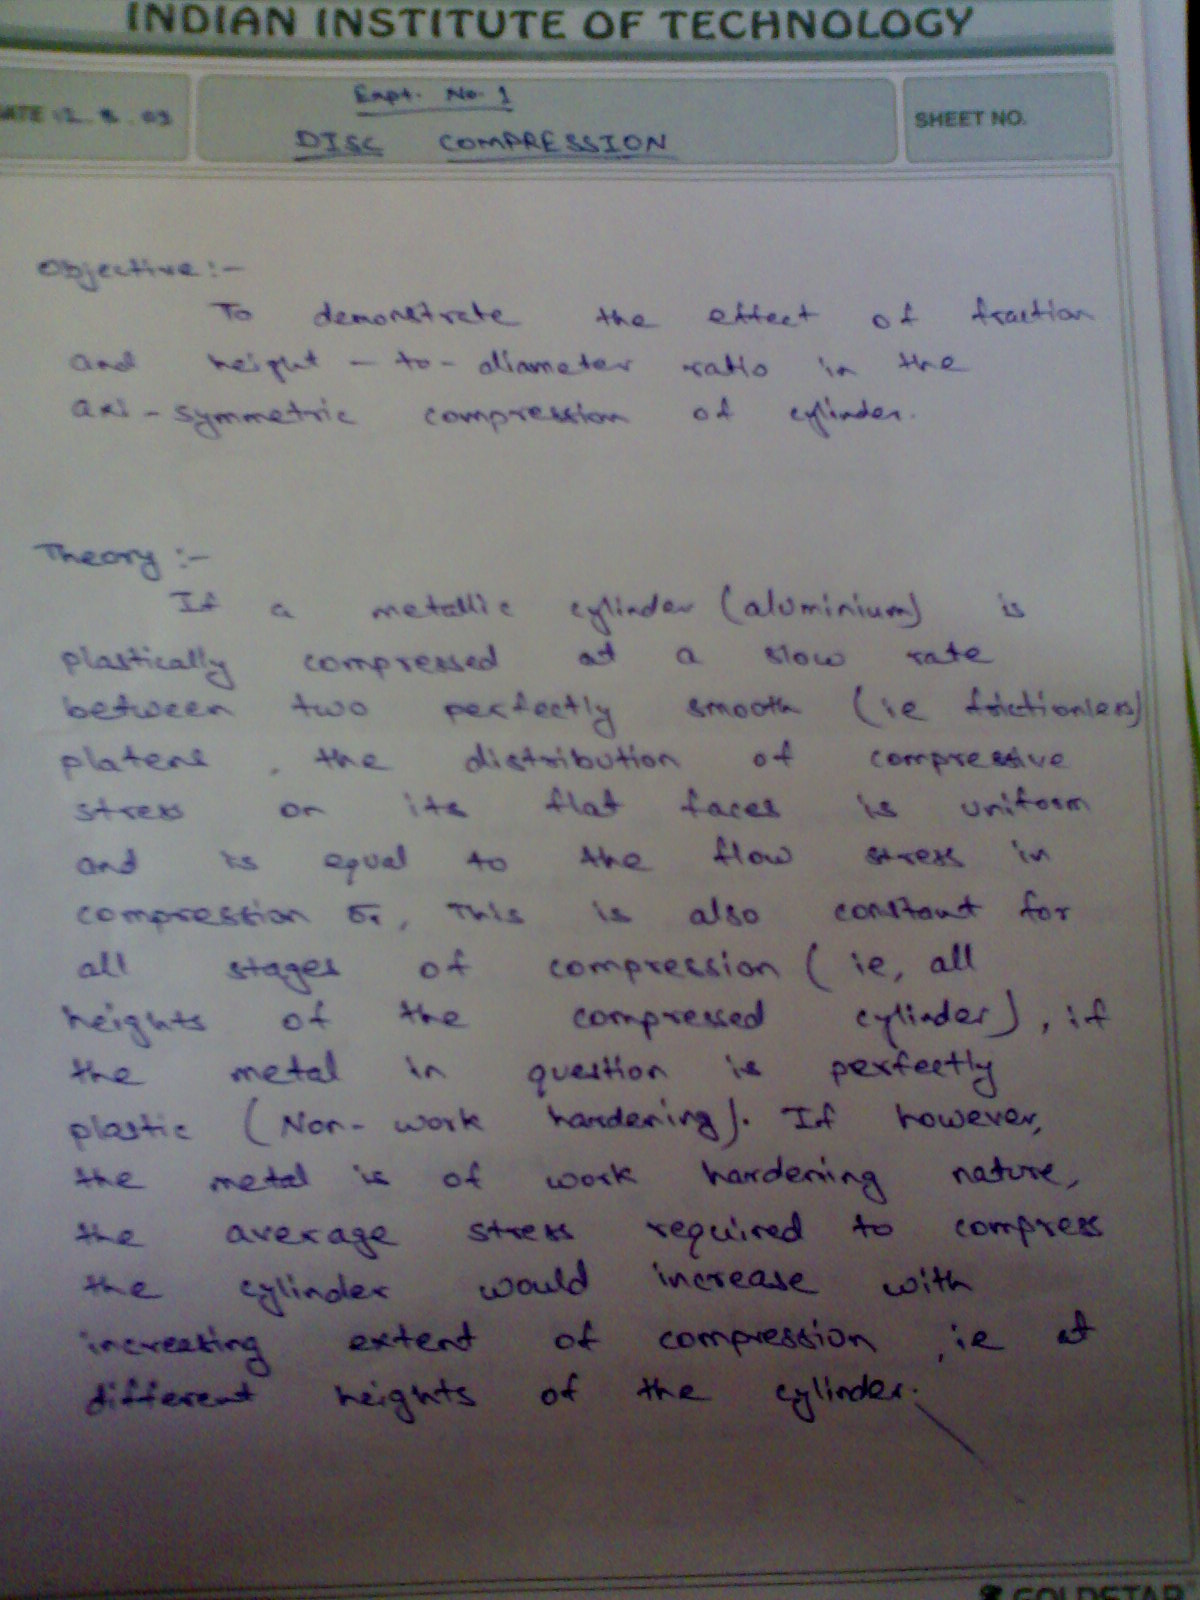 INDIAN INSTITUTE OF TECHNOLOGY
DATE 12.8.09
Expt. No. 1
SHEET NO.
DISC COMPRESSION
Objective :-
To demonstrate the effect of fraction
and height - to - diameter ratio in the
axi - symmetric compression of cylinder.
Theory :-
If a metallic cylinder (aluminium) is
plastically compressed at a slow rate
between two perfectly smooth (ie frictionless)
platens, the distribution of compressive
stress on its flat faces is uniform
and is equal to the flow stress in
compression , This is also constant for
all stages of compression ( ie, all
heights of the compressed cylinder), if
the metal in question is perfectly
plastic (Non- work hardening). If however,
the metal is of work hardening nature,
the average stress required to compress
the cylinder would increase with
increasing extent of compression, ie at
different heights of the cylinder.
GOLDSTAR